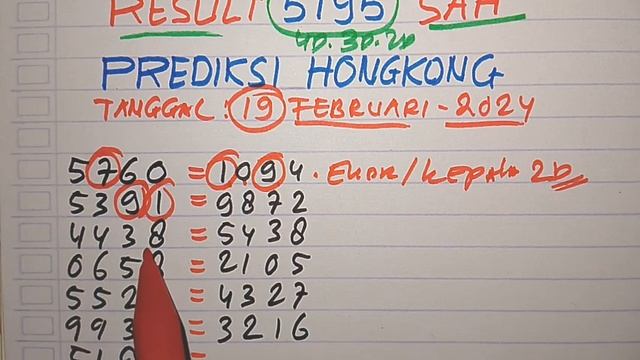 RESULT 5195 SAH
4D.3D.2D
PREDIKSI HONGKONG
TANGGAL: 19 FEBRUARI - 2024
5760 = 1094. EKOR/KEPALA 2D
5391 = 9872
4438 = 5438
0658 = 2105
552 = 4327
993 = 3216